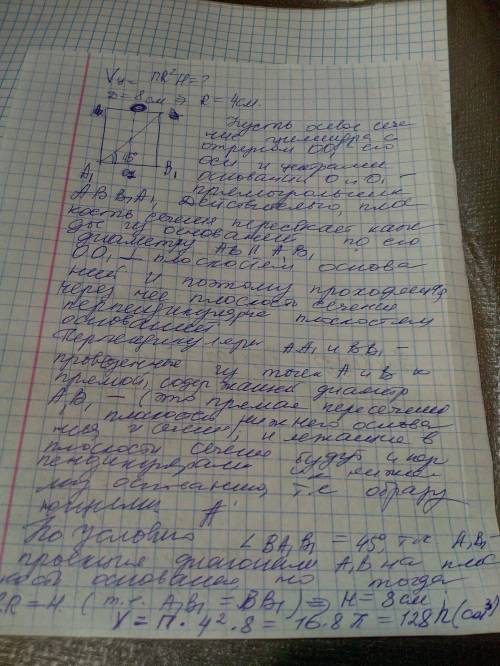 Vц = ПR²H = ?
D = 8 см ⇒ R = 4 см.
Пусть осевое сече
ние цилиндра с
отрезком OO₁ его
оси и центрами
оснований O и O₁ -
прямоугольник
A₁ 45° O₁ B₁
ABB₁A₁. Действительно, плос
кость сечения пересекает каж
дое из оснований по его
диаметру AB || A₁B₁
OO₁ - плоскостям основа
ний и поэтому проходящая
через нее плоскость сечения
перпендикулярна плоскостям
оснований
Перпендикуляры AA₁ и BB₁ -
проведенные из точек A и B к
прямой, содержащей диаметр
A₁B₁ - (это прямая пересечения
плоскости нижнего основа
ния и сечения) и лежащие в
плоскости сечения будут и пер
пендикулярами к нижне
му основанию, т.к. образу
ющими
По условию ∠BA₁B₁ = 45°, т.к. A₁B₁ -
проекция диагонали A₁B на плос
кость основания, но тогда
2R = H. (т.к. A₁B₁ = BB₁) ⇒ H = 8 см
V = П · 4² · 8 = 16 · 8 П = 128 П (см³)